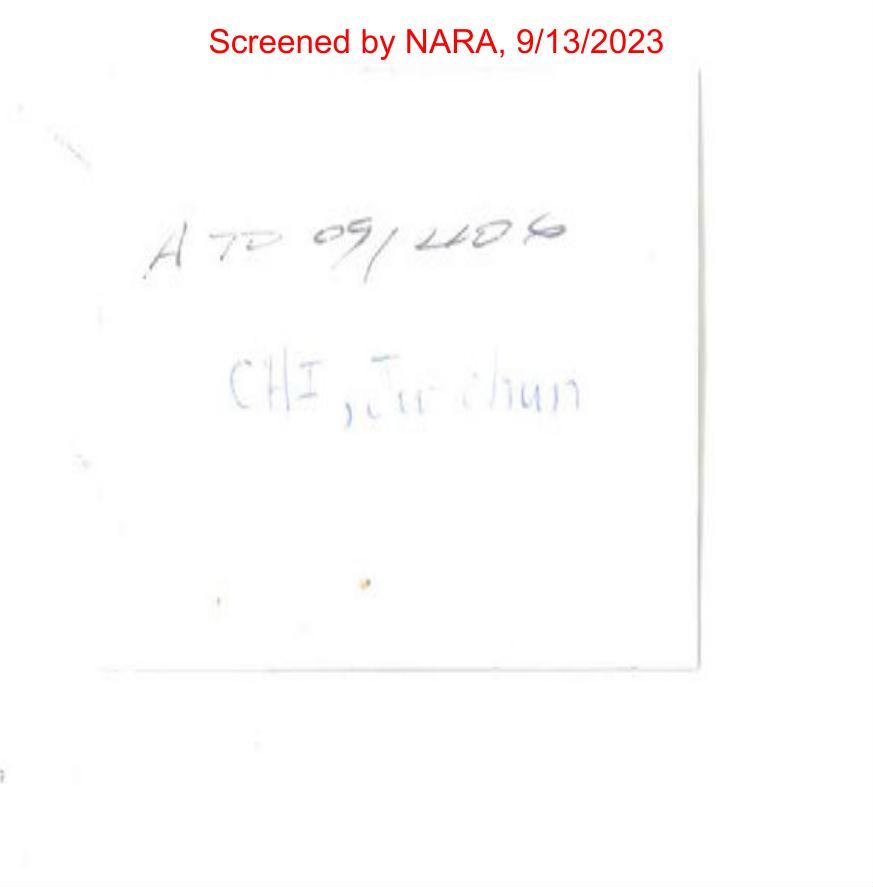 Screened by NARA, 9/13/2023
A 70 091 406
CHI, Ju chun